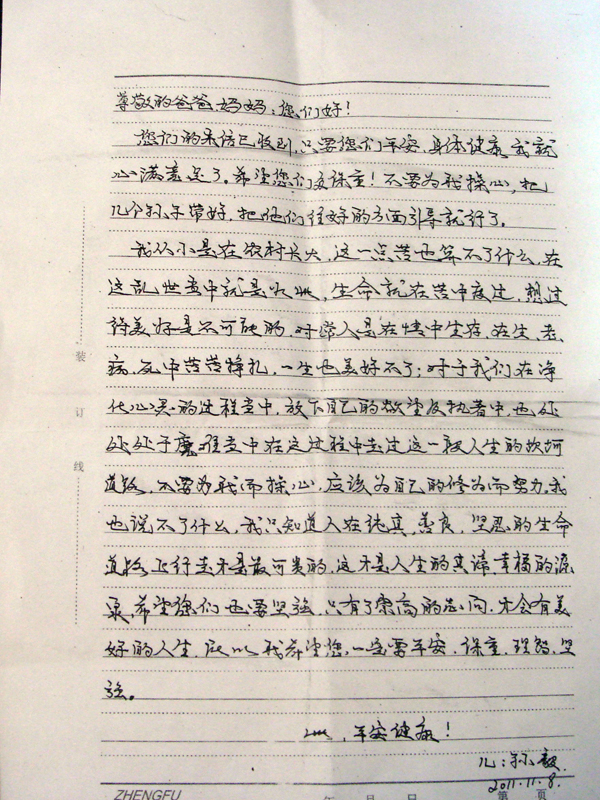 尊敬的爸爸妈妈:您们好!
您们的来信已收到,只要您们平安,身体健康,我就
心满意足了。希望您们多保重!不要为我操心,把
几个孙子带好,把他们往好的方面引导就行了。
我从小是在农村长大,这一点苦也算不了什么,在
这乱世当中就是如此,生命就在苦中度过,想过
得美好是不可能的,对常人是在情中生存,在生、老、
病、死中苦苦挣扎,一生也美好不了;对于我们在净
化心灵的过程当中,放下自己的欲望及执著中,也处
处处于魔难当中在这过程中走过这一段人生的坎坷
道路,不要为我而操心,应该为自己的修为而努力,我
也说不了什么,我只知道人在纯真、善良、坚忍的生命
道路上行走才是最可贵的,这才是人生的真谛,幸福的源
泉,希望您们也要坚强,只有了崇高的志向,才会有美
好的人生,所以我希望您,一定要平安、保重、理智、坚
强。
平安健康!
儿:孙毅
2011.11.8.
装
订
线
ZHENGFU
年 月 日
第 页